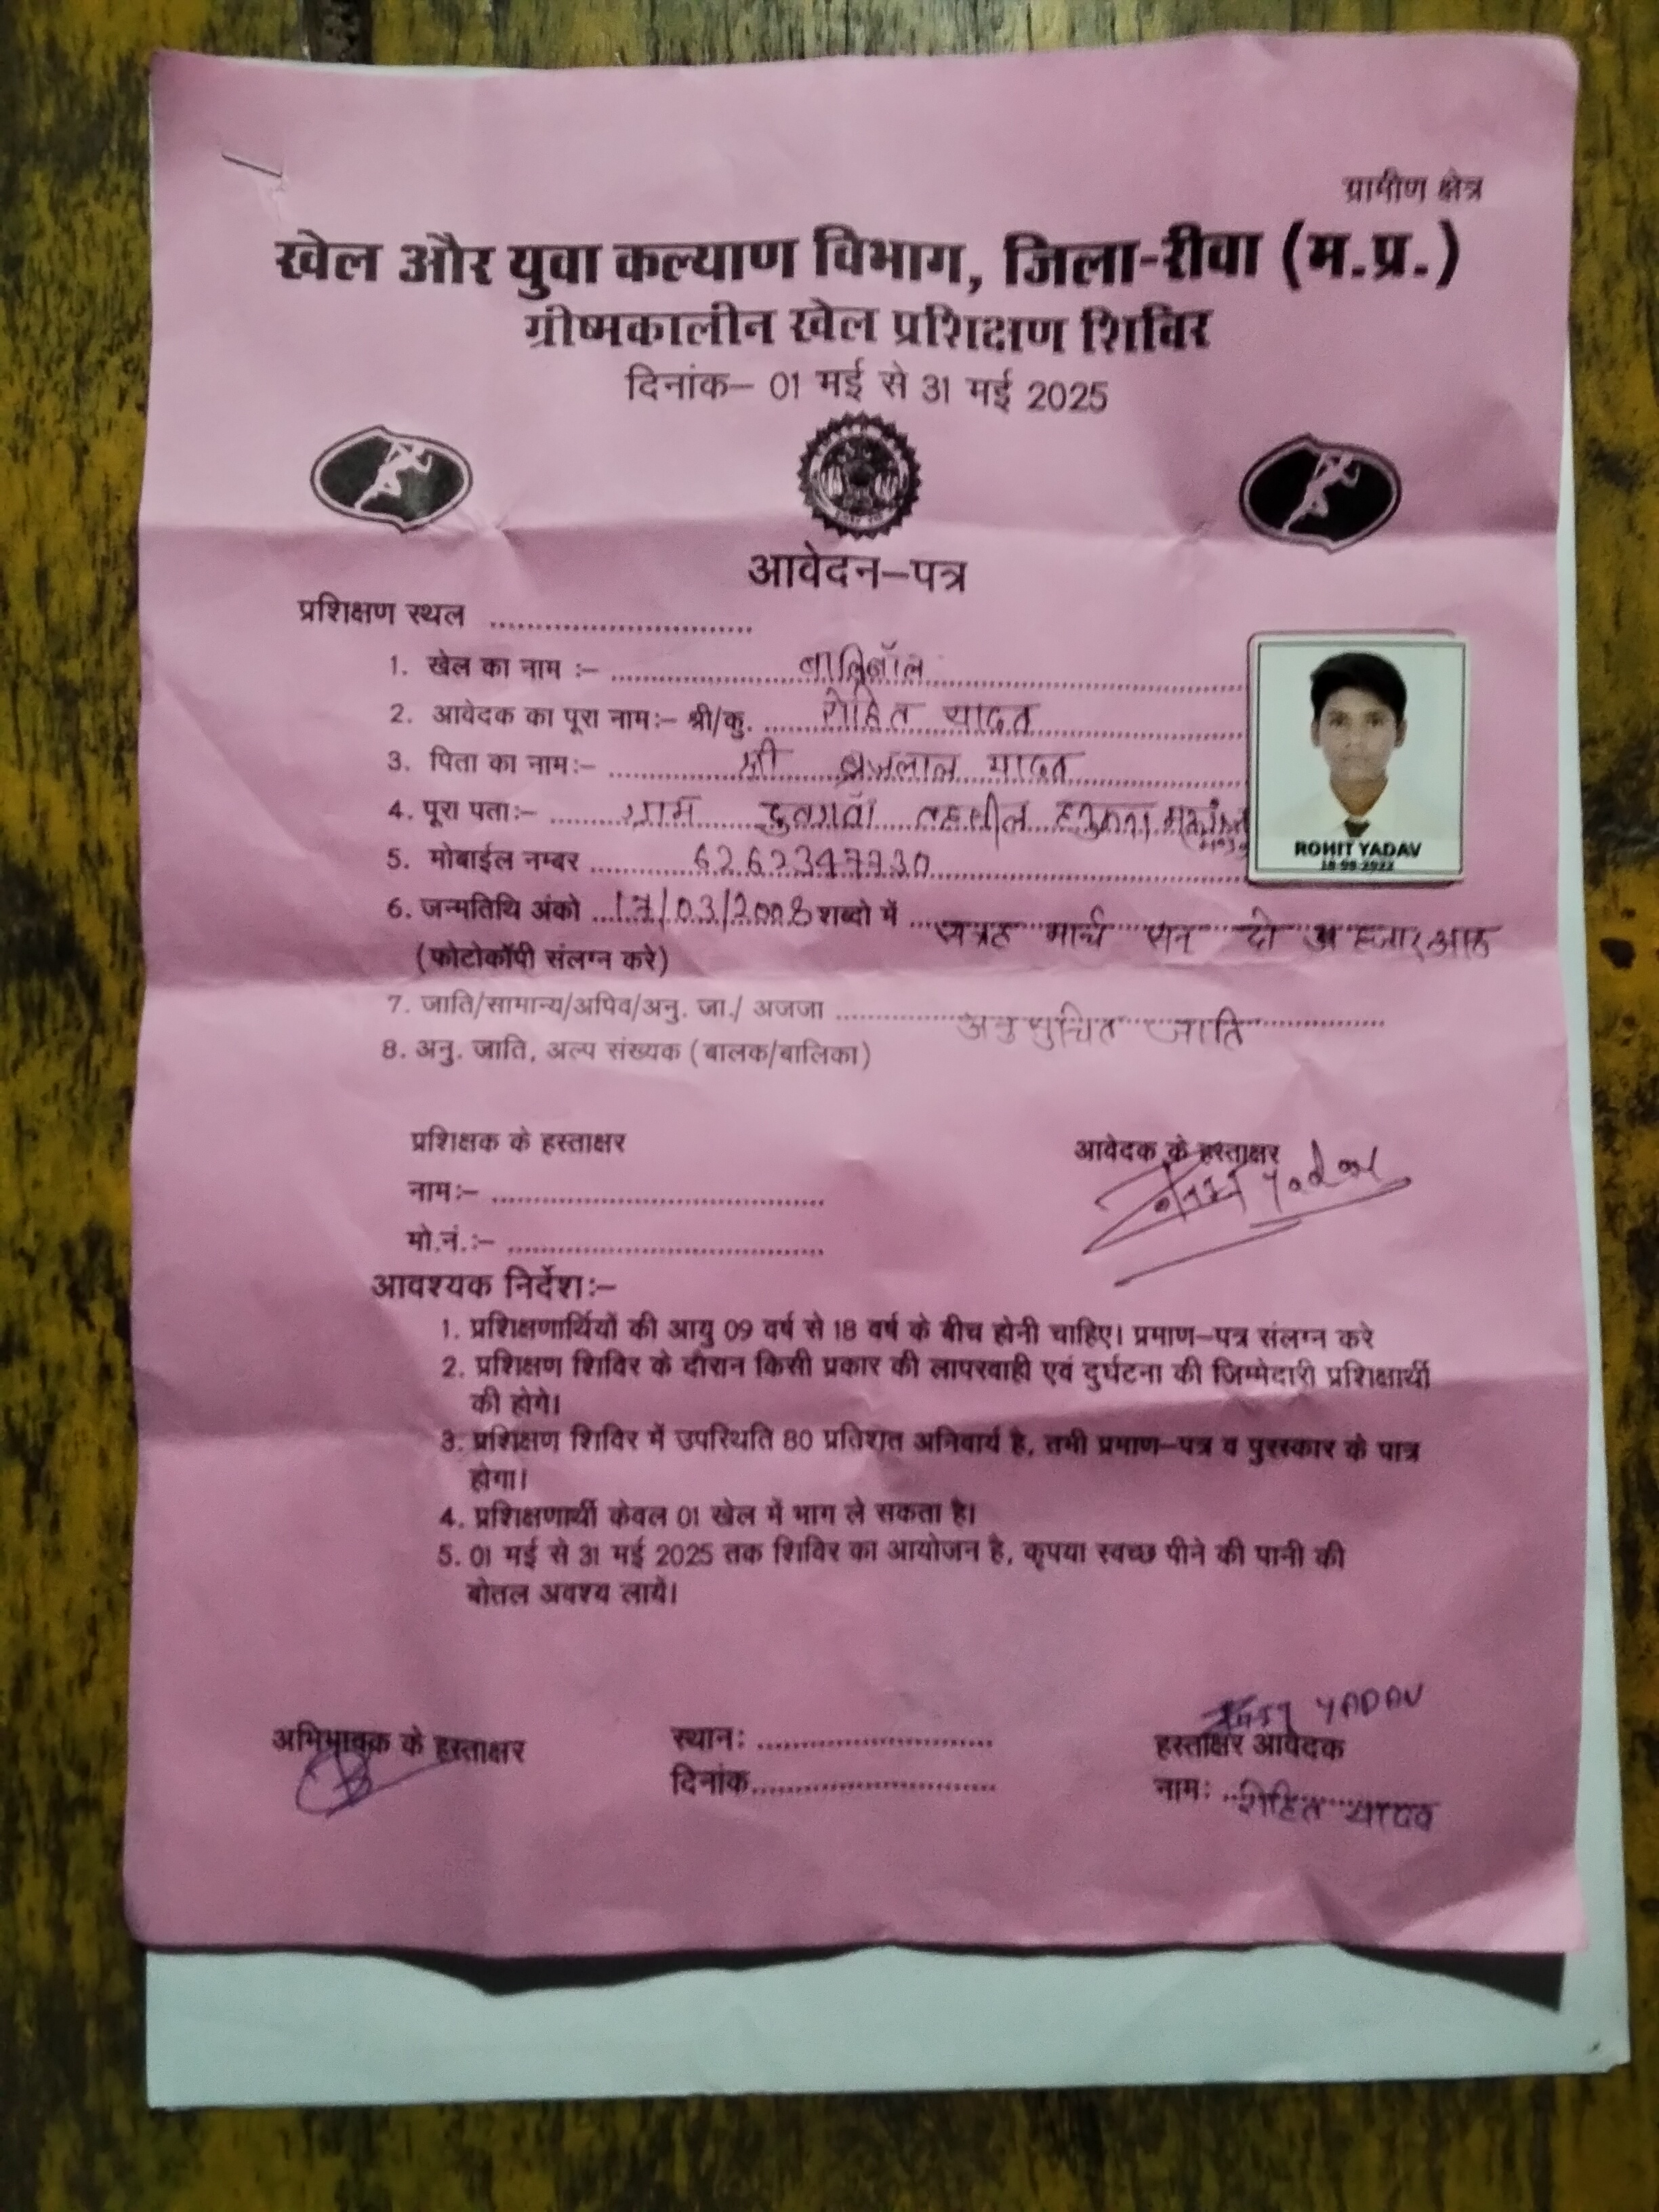 ग्रामीण क्षेत्र
खेल और युवा कल्याण विभाग, जिला-रीवा (म.प्र.)
ग्रीष्मकालीन खेल प्रशिक्षण शिविर
दिनांक– 01 मई से 31 मई 2025
आवेदन–पत्र
प्रशिक्षण स्थल ..............................
1. खेल का नाम :– बालिबॉल
2. आवेदक का पूरा नाम:– श्री/कु. रोहित यादव
3. पिता का नाम:– श्री ब्रजलाल यादव
4. पूरा पता:– ग्राम तहसील
5. मोबाईल नम्बर 6262347730
6. जन्मतिथि अंको 17/03/2008 शब्दो में सत्रह मार्च सन दो हजार आठ
(फोटोकॉपी संलग्न करे)
ROHIT YADAV
7. जाति/सामान्य/अपिव/अनु. जा./ अजजा अनुसुचित जाति
8. अनु. जाति, अल्प संख्यक (बालक/बालिका)
प्रशिक्षक के हस्ताक्षर
आवेदक के हस्ताक्षर
Yadav
नाम:– ..............................
मो.नं.:– ..............................
आवश्यक निर्देश:–
1. प्रशिक्षणार्थियों की आयु 09 वर्ष से 18 वर्ष के बीच होनी चाहिए। प्रमाण–पत्र संलग्न करे
2. प्रशिक्षण शिविर के दौरान किसी प्रकार की लापरवाही एवं दुर्घटना की जिम्मेदारी प्रशिक्षार्थी
की होगे।
3. प्रशिक्षण शिविर में उपस्थिति 80 प्रतिशत अनिवार्य है, तभी प्रमाण–पत्र व पुरस्कार के पात्र
होगा।
4. प्रशिक्षणार्थी केवल 01 खेल में भाग ले सकता है।
5. 01 मई से 31 मई 2025 तक शिविर का आयोजन है, कृपया स्वच्छ पीने की पानी की
बोतल अवश्य लायें।
YADAV
अभिभावक के हस्ताक्षर
स्थान: ..............................
हस्ताक्षर आवेदक
दिनांक..............................
नाम: रोहित यादव